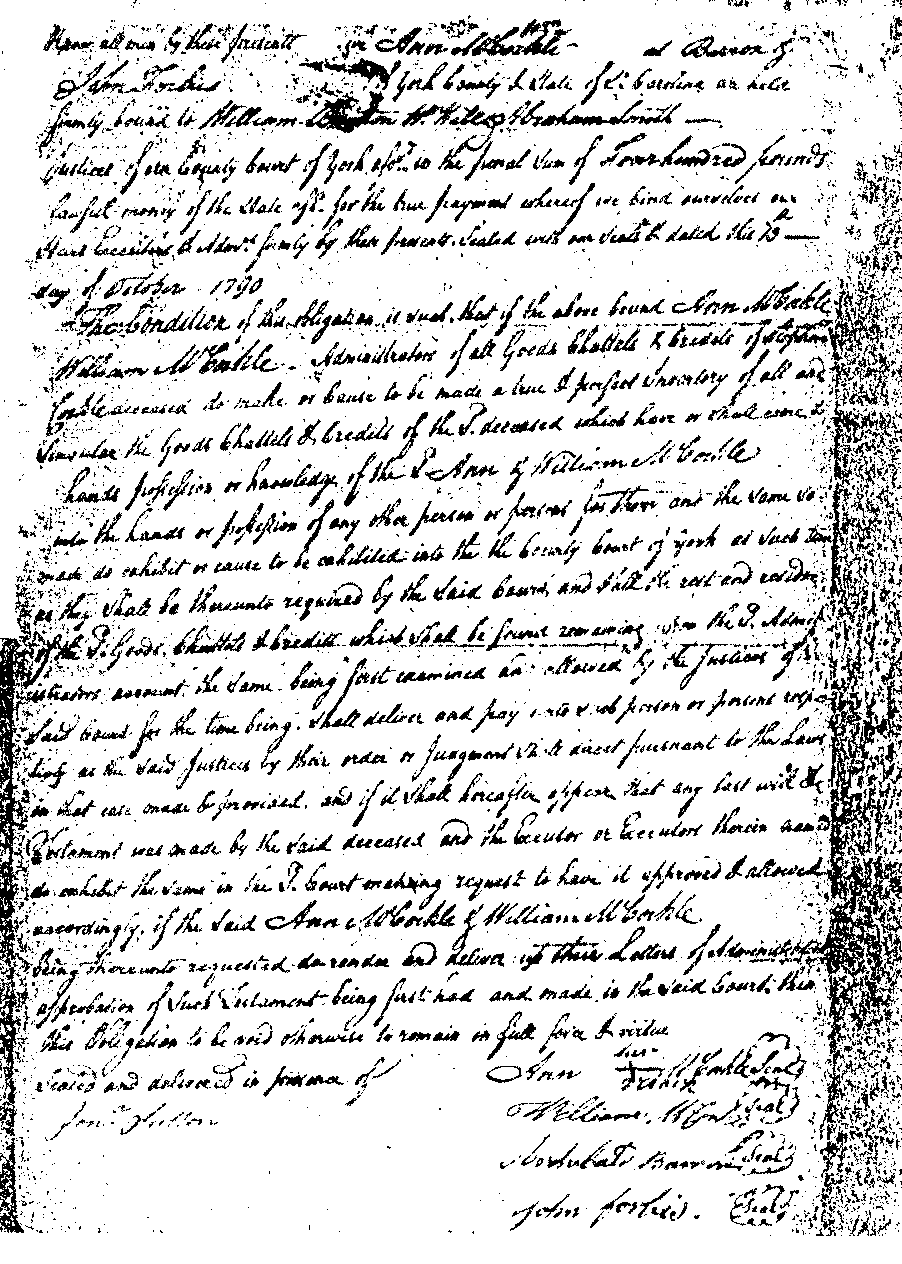 Know all men by these presents we Ann McCorkle at Barron &
John Forbis of York County & State of So. Carolina are held
firmly bound to William Wm. Hill & Abraham Smith
Justices of our County Court of York afsd. in the penal Sum of Four hundred pounds
Lawful money of the State afsd. for the true payment whereof we bind ourselves our
Heirs Executors & Admrs. firmly by these presents Sealed with our Seals & dated this
day of October 1790
The Condition of this Obligation is such, that if the above bound Ann McCorkle
William McCorkle Administrators of all Goods Chattels & Credits of
Corkle deceased do make or Cause to be made a true & perfect Inventory of all and
Singular the Goods Chattels & Credits of the Sd. deceased which have or shall come to
hands possession or knowledge of the Sd. Ann & William McCorkle
into the hands or possession of any other person or persons for them and the same so
made do exhibit or cause to be exhibited into the the County Court of York at such time
as they Shall be thereunto required by the Said Court, and shall the rest and residue
of the Sd. Goods, Chattels & Credits which shall be found remaining upon the Sd. Admin
istrators account the same being first examined and allowed by the Justices of
Said Court for the time being. Shall deliver and pay unto such person or persons respec
tively as the Said Justices by their order or Judgment shall direct pursuant to the Laws
in that case made & provided, and if it Shall hereafter appear that any last will &
Testament was made by the Said deceased and the Executor or Executors therein named
do exhibit the same in the Sd. Court making request to have it approved & allowed
accordingly, if the Said Ann McCorkle & William McCorkle
being thereunto requested do render and deliver up their Letters of Administration
approbation of Such Testament being first had and made in the Said Court, then
this Obligation to be void otherwise to remain in full force & virtue
Sealed and delivered in presence of
Ann her McCorkle Seal
William Seal
Archibald Barron Seal
John Forbis. Seal